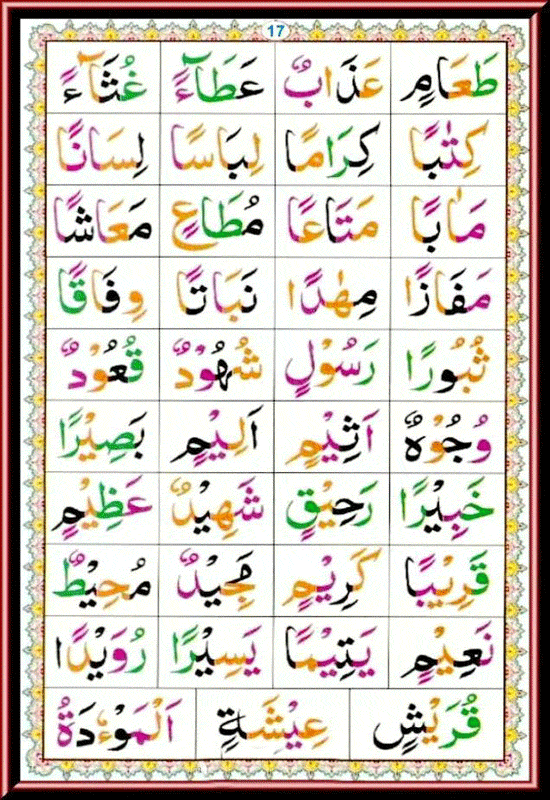 17
طَعَامٍ عَذَابٌ عَطَآءً غُثَآءً
كِتٰبًا كِرَامًا لِبَاسًا لِسَانًا
مَاٰبًا مَتَاعًا مُطَاعٍ مَعَاشًا
مَفَازًا مِهٰدًا نَبَاتًا وِفَاقًا
ثُبُورًا رَسُوْلٍ شُهُوْدٌ قُعُوْدٌ
وُجُوْهٌ اَثِيْمٍ اَلِيْمٍ بَصِيْرًا
خَبِيْرًا رَحِيْقٍ شَهِيْدٌ عَظِيْمٍ
قَرِيْبًا كَرِيْمٍ مَجِيْدٌ مُحِيْطٌ
نَعِيْمٍ يَتِيْمًا يَسِيْرًا رُوَيْدًا
قُرَيْشٍ عِيْشَةٍ اَلْمَوْءٗدَةُ